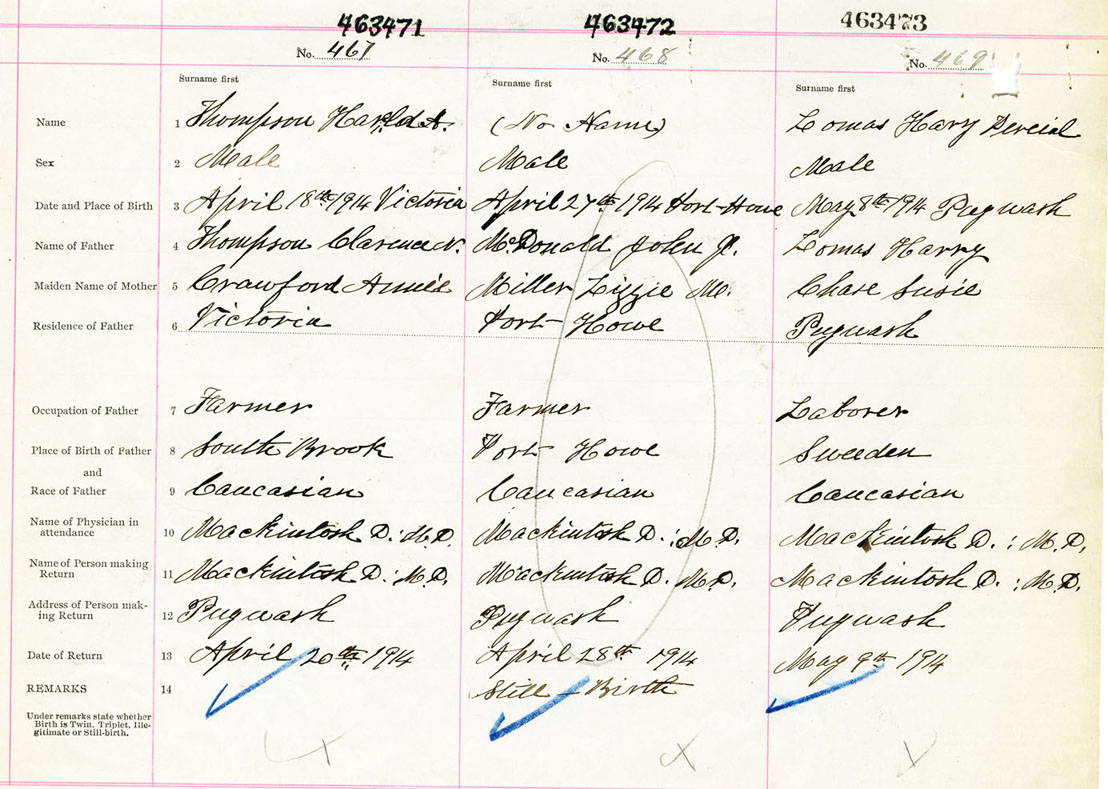 463471 463472 463473
No. 467 No. 468 No. 469
Surname first Surname first Surname first
Name 1 Thompson Harold A. (No Name) Lomas Hary Percial
Sex 2 Male Male Male
Date and Place of Birth 3 April 18th 1914 Victoria April 27th 1914 Port-Howe May 8th 1914 Pugwash
Name of Father 4 Thompson Clarence N. McDonald John J. Lomas Harry
Maiden Name of Mother 5 Crawford Annie Miller Lizzie M. Chase Susie
Residence of Father 6 Victoria Port-Howe Pugwash
Occupation of Father 7 Farmer Farmer Laborer
Place of Birth of Father 8 South Brook Port-Howe Sweeden
and
Race of Father 9 Caucasian Caucasian Caucasian
Name of Physician in
attendance 10 Mackintosh D: M.D. Mackintosh D.: M.D. Mackintosh D.: M.D.
Name of Person making
Return 11 Mackintosh D: M.D. Mackintosh D. M.D. Mackintosh D.: M.D.
Address of Person mak-
ing Return 12 Pugwash Pugwash Pugwash
Date of Return 13 April 20th 1914 April 28th 1914 May 9th 1914
REMARKS 14 Still-Birth
Under remarks state whether
Birth is Twin, Triplet, Ille-
gitimate or Still-birth.